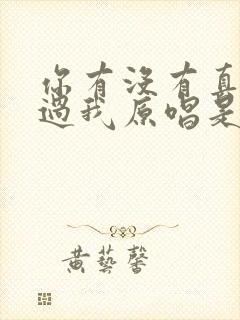 你有沒有真
過我原唱是
黃藝馨